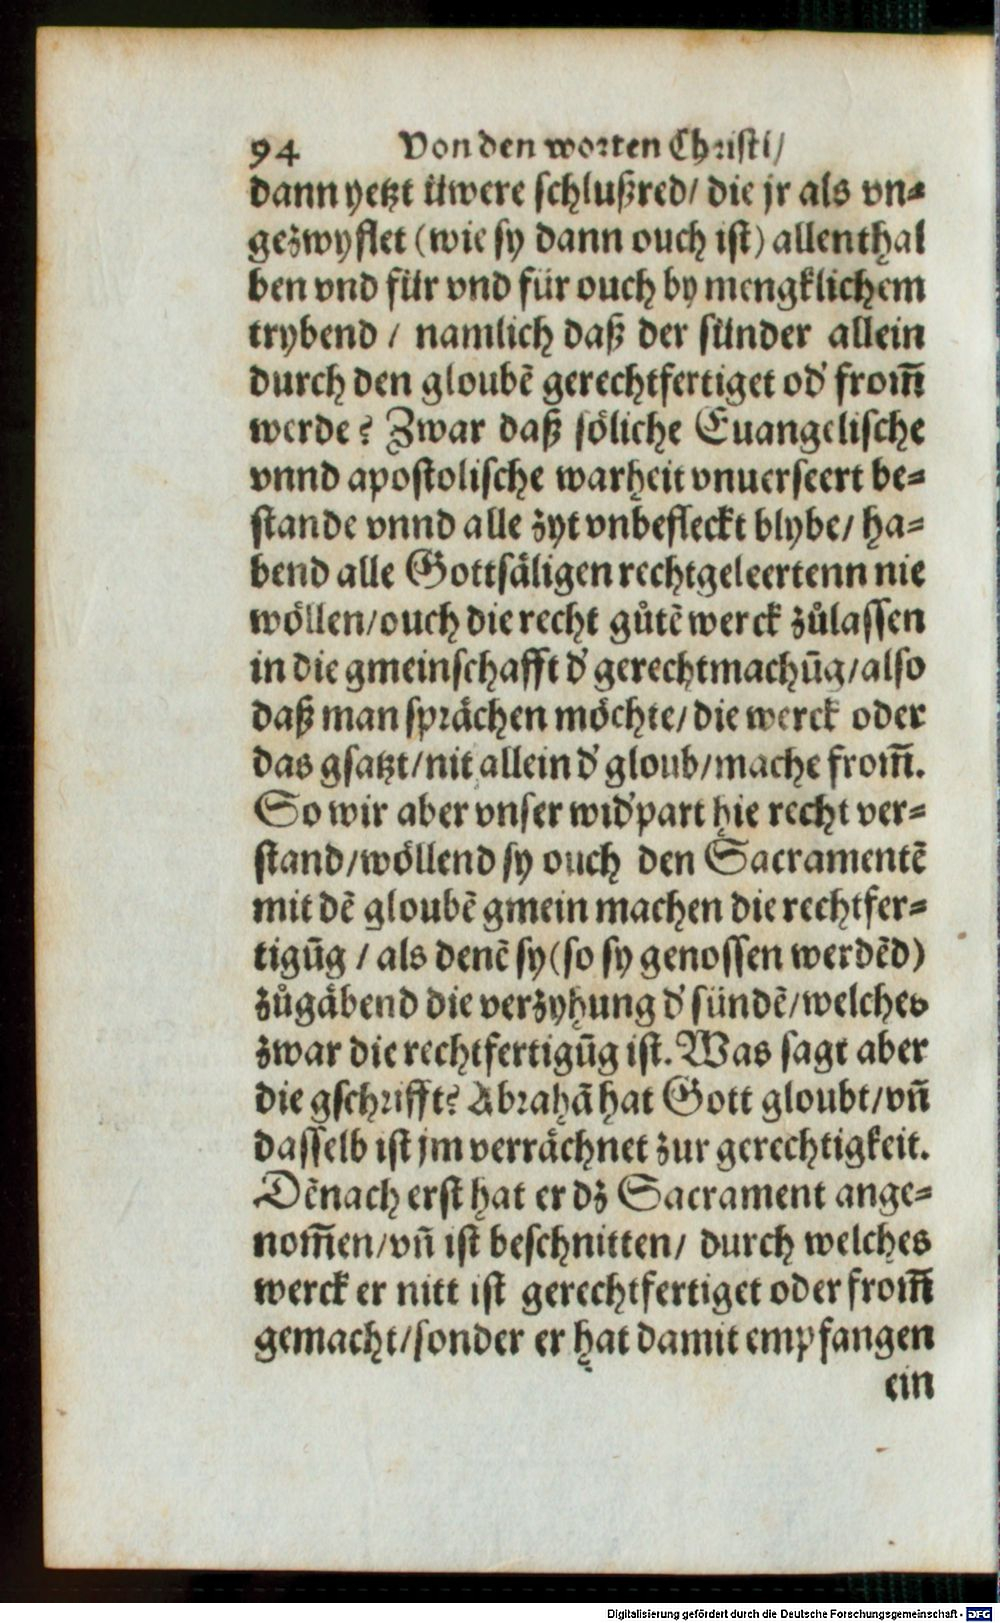 94 Von den worten Christi/
dann yetzt üwere schlußred/ die jr als vn⸗
gezwyflet (wie sy dann ouch ist) allenthal
ben vnd für vnd für ouch by mengklichem
trybend / namlich daß der sünder allein
durch den gloubẽ gerechtfertiget od' from̃
werde? Zwar daß söliche Euangelische
vnnd apostolische warheit vnuerseert be⸗
stande vnnd alle zyt vnbefleckt blybe/ ha⸗
bend alle Gottsäligen rechtgeleertenn nie
wöllen/ouch die recht gůtẽ werck zůlassen
in die gmeinschafft d' gerechtmachũg/also
daß man sprächen möchte/die werck oder
das gsatzt/nit allein d' gloub/mache from̃.
So wir aber vnser wid'part hie recht ver⸗
stand/wöllend sy ouch den Sacramentẽ
mit dẽ gloubẽ gmein machen die rechtfer⸗
tigũg / als denẽ sy(so sy genossen werdẽd)
zůgäbend die verzyhung d' sündẽ/welches
zwar die rechtfertigũg ist. Was sagt aber
die gschrifft? Abrahã hat Gott gloubt/vñ
dasselb ist jm verrächnet zur gerechtigkeit.
Dẽnach erst hat er dz Sacrament ange⸗
nom̃en/vñ ist beschnitten/ durch welches
werck er nitt ist gerechtfertiget oder from̃
gemacht/sonder er hat damit empfangen
ein
Digitalisierung gefördert durch die Deutsche Forschungsgemeinschaft - DFG